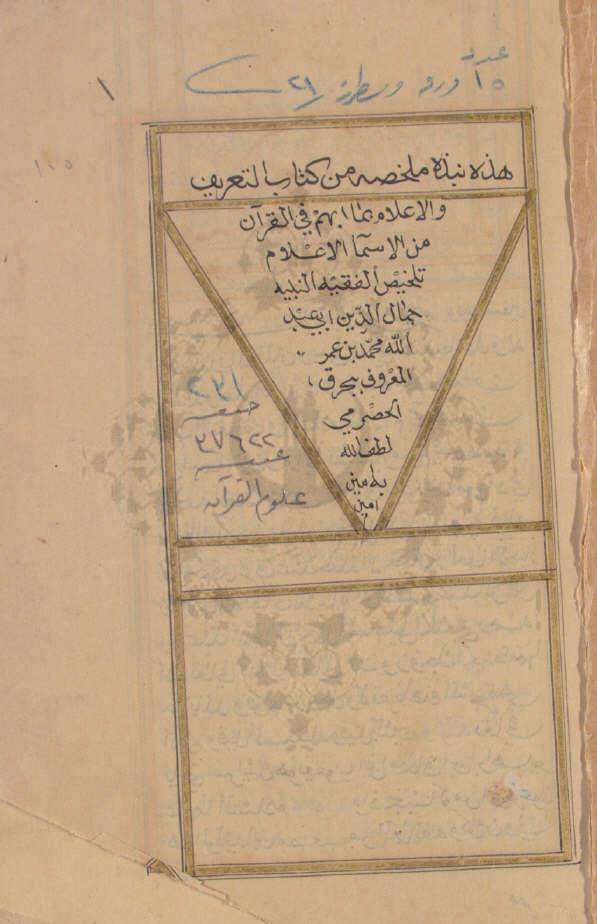 عدد
١٥ ورقه وسطره ٢١
١
١٠٥
هذه نبذة ملخصه من كتاب التعريف
والاعلام بما ابهم في القرآن
من الاسما الاعلام
تلخيص الفقيه النبيه
جمال الدين ابي عبد
الله محمد بن عمر
المعروف ببحرق
الحضرمي
لطف الله
به امين
امين
٢٣١
خصوصيه
٣٧٦٢٢
عموميه
علوم القرآن